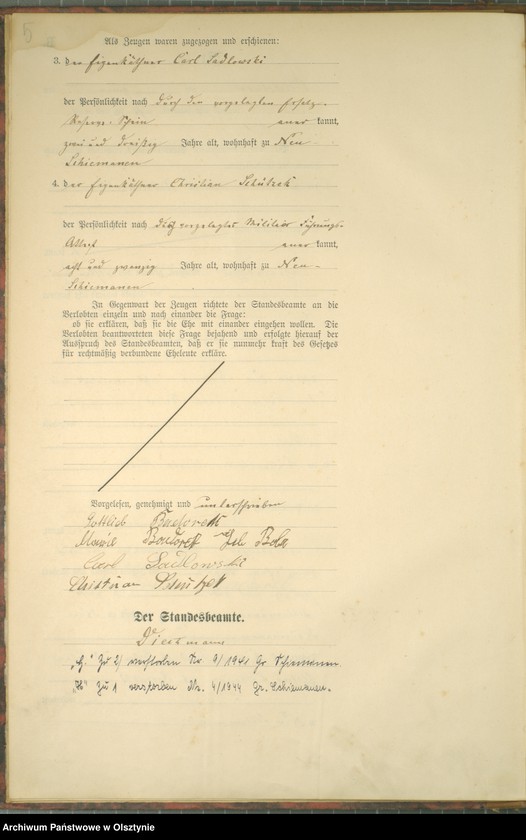 5
Als Zeugen waren zugezogen und erschienen:
3. der Eigenkäthner Carl Sadlowski
der Persönlichkeit nach durch den vorgelegten Ersatz-
Reserve-Schein erkannt,
zwei und dreißig Jahre alt, wohnhaft zu Neu-
Schiemanen
4. der Eigenkäthner Christian
der Persönlichkeit nach vorgelegtes Militär Führungs-
Attest erkannt,
acht und zwanzig Jahre alt, wohnhaft zu Neu-
Schiemanen
In Gegenwart der Zeugen richtete der Standesbeamte an die
Verlobten einzeln und nach einander die Frage:
ob sie erklären, daß sie die Ehe mit einander eingehen wollen. Die
Verlobten beantworteten diese Frage bejahend und erfolgte hierauf der
Ausspruch des Standesbeamten, daß er sie nunmehr kraft des Gesetzes
für rechtmäßig verbundene Eheleute erkläre.
Vorgelesen, genehmigt und unterschrieben
Gottlieb
Marie
Carl Sadlowski
Christian
Der Standesbeamte.
Zu 2) verstorben Nr. 9/1941 Gr. Schiemanen
"H" Zu 1 verstorben Nr. 4/1944 Gr. Schiemanen.
Archiwum Państwowe w Olsztynie